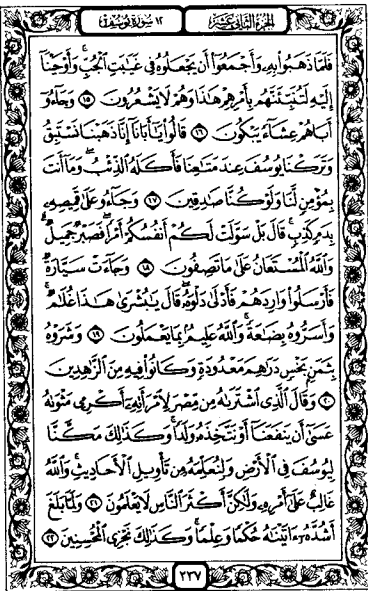 الجزء الثاني عشر ١٢ سورة يوسف
فَلَمَّا ذَهَبُوا۟ بِهِۦ وَأَجْمَعُوٓا۟ أَن يَجْعَلُوهُ فِى غَيَـٰبَتِ ٱلْجُبِّ ۚ وَأَوْحَيْنَآ
إِلَيْهِ لَتُنَبِّئَنَّهُم بِأَمْرِهِمْ هَـٰذَا وَهُمْ لَا يَشْعُرُونَ ١٥ وَجَآءُوٓ
أَبَاهُمْ عِشَآءً يَبْكُونَ ١٦ قَالُوا۟ يَـٰٓأَبَانَآ إِنَّا ذَهَبْنَا نَسْتَبِقُ
وَتَرَكْنَا يُوسُفَ عِندَ مَتَـٰعِنَا فَأَكَلَهُ ٱلذِّئْبُ ۖ وَمَآ أَنتَ
بِمُؤْمِنٍ لَّنَا وَلَوْ كُنَّا صَـٰدِقِينَ ١٧ وَجَآءُو عَلَىٰ قَمِيصِهِۦ
بِدَمٍ كَذِبٍ ۚ قَالَ بَلْ سَوَّلَتْ لَكُمْ أَنفُسُكُمْ أَمْرًا ۖ فَصَبْرٌ جَمِيلٌ ۖ
وَٱللَّهُ ٱلْمُسْتَعَانُ عَلَىٰ مَا تَصِفُونَ ١٨ وَجَآءَتْ سَيَّارَةٌ
فَأَرْسَلُوا۟ وَارِدَهُمْ فَأَدْلَىٰ دَلْوَهُۥ ۖ قَالَ يَـٰبُشْرَىٰ هَـٰذَا غُلَـٰمٌ ۚ
وَأَسَرُّوهُ بِضَـٰعَةً ۚ وَٱللَّهُ عَلِيمٌۢ بِمَا يَعْمَلُونَ ١٩ وَشَرَوْهُ
بِثَمَنٍۭ بَخْسٍ دَرَٰهِمَ مَعْدُودَةٍ وَكَانُوا۟ فِيهِ مِنَ ٱلزَّٰهِدِينَ
٢٠ وَقَالَ ٱلَّذِى ٱشْتَرَىٰهُ مِن مِّصْرَ لِٱمْرَأَتِهِۦٓ أَكْرِمِى مَثْوَىٰهُ
عَسَىٰٓ أَن يَنفَعَنَآ أَوْ نَتَّخِذَهُۥ وَلَدًا ۚ وَكَذَٰلِكَ مَكَّنَّا
لِيُوسُفَ فِى ٱلْأَرْضِ وَلِنُعَلِّمَهُۥ مِن تَأْوِيلِ ٱلْأَحَادِيثِ ۚ وَٱللَّهُ
غَالِبٌ عَلَىٰٓ أَمْرِهِۦ وَلَـٰكِنَّ أَكْثَرَ ٱلنَّاسِ لَا يَعْلَمُونَ ٢١ وَلَمَّا بَلَغَ
أَشُدَّهُۥٓ ءَاتَيْنَـٰهُ حُكْمًا وَعِلْمًا ۚ وَكَذَٰلِكَ نَجْزِى ٱلْمُحْسِنِينَ ٢٢
٢٣٧